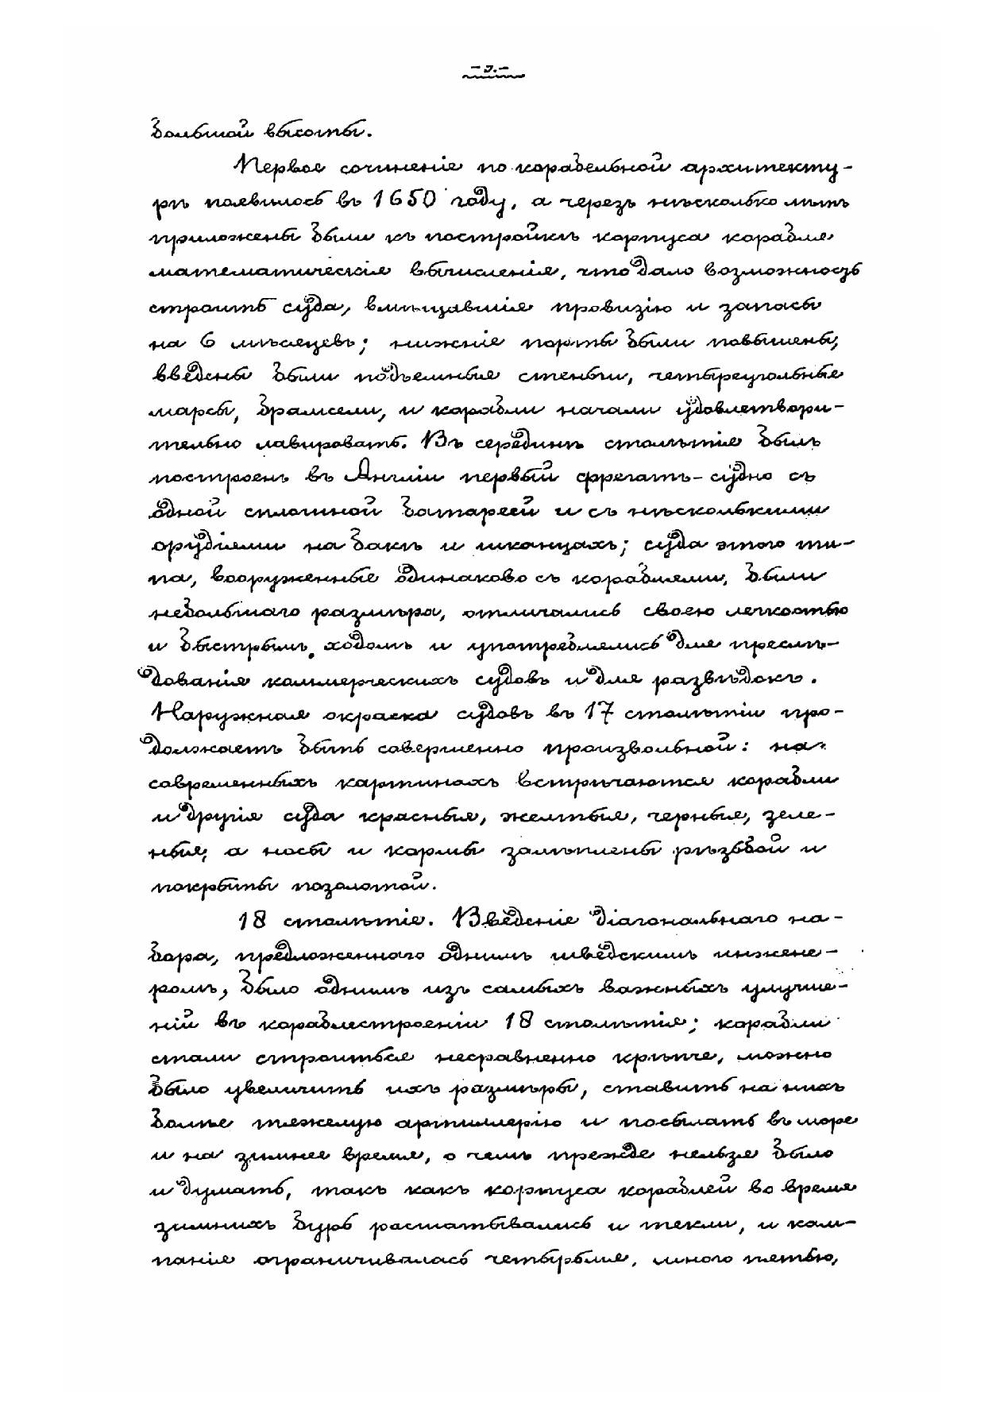 -5.-
большой высоты.
Первое сочиненіе по корабельной архитекту-
рѣ появилось въ 1650 году, а черезъ нѣсколько лѣтъ
приложены были къ постройкѣ корпуса корабля
математическія вычисленія, что дало возможность
строить суда, вмѣщавшія провизію и запасы
на 6 мѣсяцевъ; нижніе порты были повышены,
введены были подъемныя стеньги, четыреугольные
марсы, брамсели, и корабли начали удовлетвори-
тельно лавировать. Въ серединѣ столѣтія былъ
построенъ въ Англіи первый фрегатъ-судно съ
одной сплошной батареей и съ нѣсколькими
орудіями на бакѣ и шканцахъ; суда этого ти-
па, вооруженныя одинаково съ кораблями, были
небольшаго размѣра, отличались своею легкостью
и быстрымъ ходомъ и употреблялись для преслѣ-
дованія коммерческихъ судовъ и для развѣдокъ.
Наружная окраска судовъ въ 17 столѣтіи про-
должаетъ быть совершенно произвольной: на
современныхъ картинахъ встрѣчаются корабли
и другія суда красныя, желтыя, черныя, зеле-
ныя, а носы и кормы залѣплены рѣзьбой и
покрыты позолотой.
18 столѣтіе. Введеніе діагональнаго на-
бора, предложеннаго однимъ шведскимъ инжене-
ромъ, было однимъ изъ самыхъ важныхъ улучше-
ній въ кораблестроеніи 18 столѣтія; корабли
стали строиться несравненно крѣпче, можно
было увеличить ихъ размѣры, ставить на нихъ
болѣе тяжелую артиллерію и посылать въ море
и на зимнее время, о чемъ прежде нельзя было
и думать, такъ какъ корпуса кораблей во время
зимнихъ бурь расшатывались и текли, и кам-
панія ограничивалась четырьмя, много пятью,